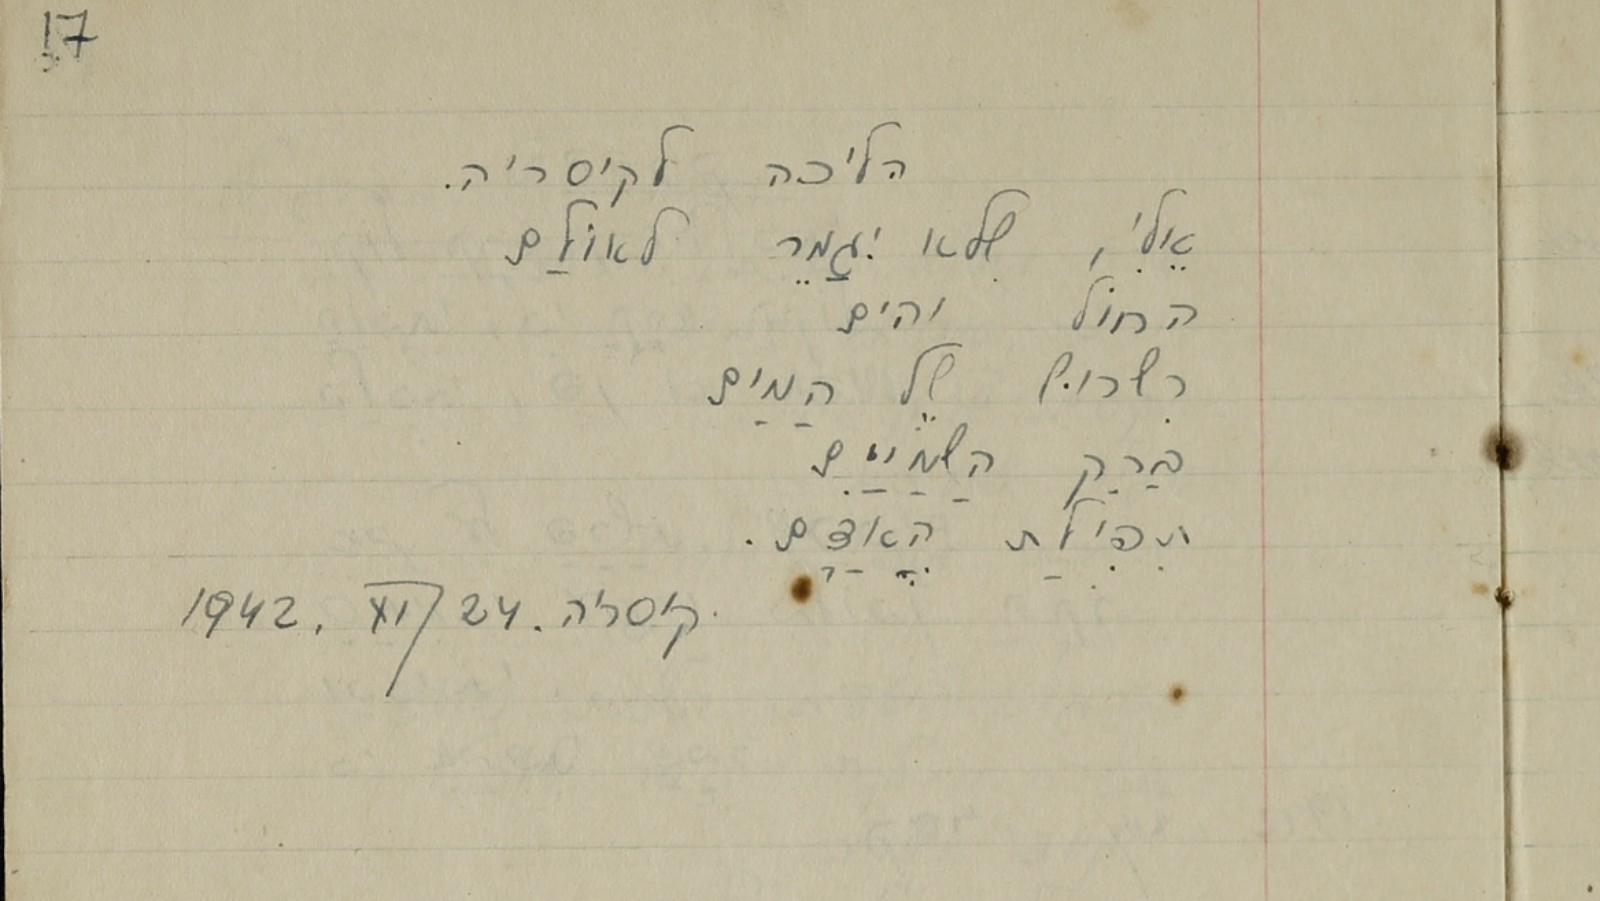 17
הליכה לקיסריה.
אֵלִי, שֶׁלא יִגָמֵר לאוֹלָם
החוֹל והים
רִשרוּש שֶל הַמַיִם
בְרַק הַשָמַיִם
תִפִילַת הָאָדָם.
קיסריה. 24/XI. 1942